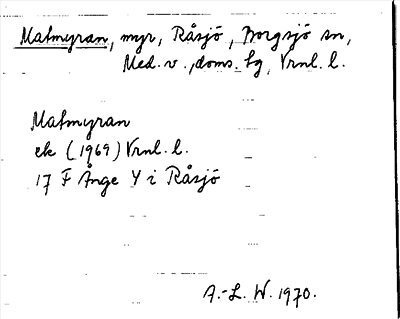 Matmyran, myr, Råsjö, Borgsjö sn,
Med. v., doms. hg, Vrnl. l.
Matmyran
ek (1969) Vrnl. l.
17 F Ånge Y i Råsjö
A.-L. W. 1970.